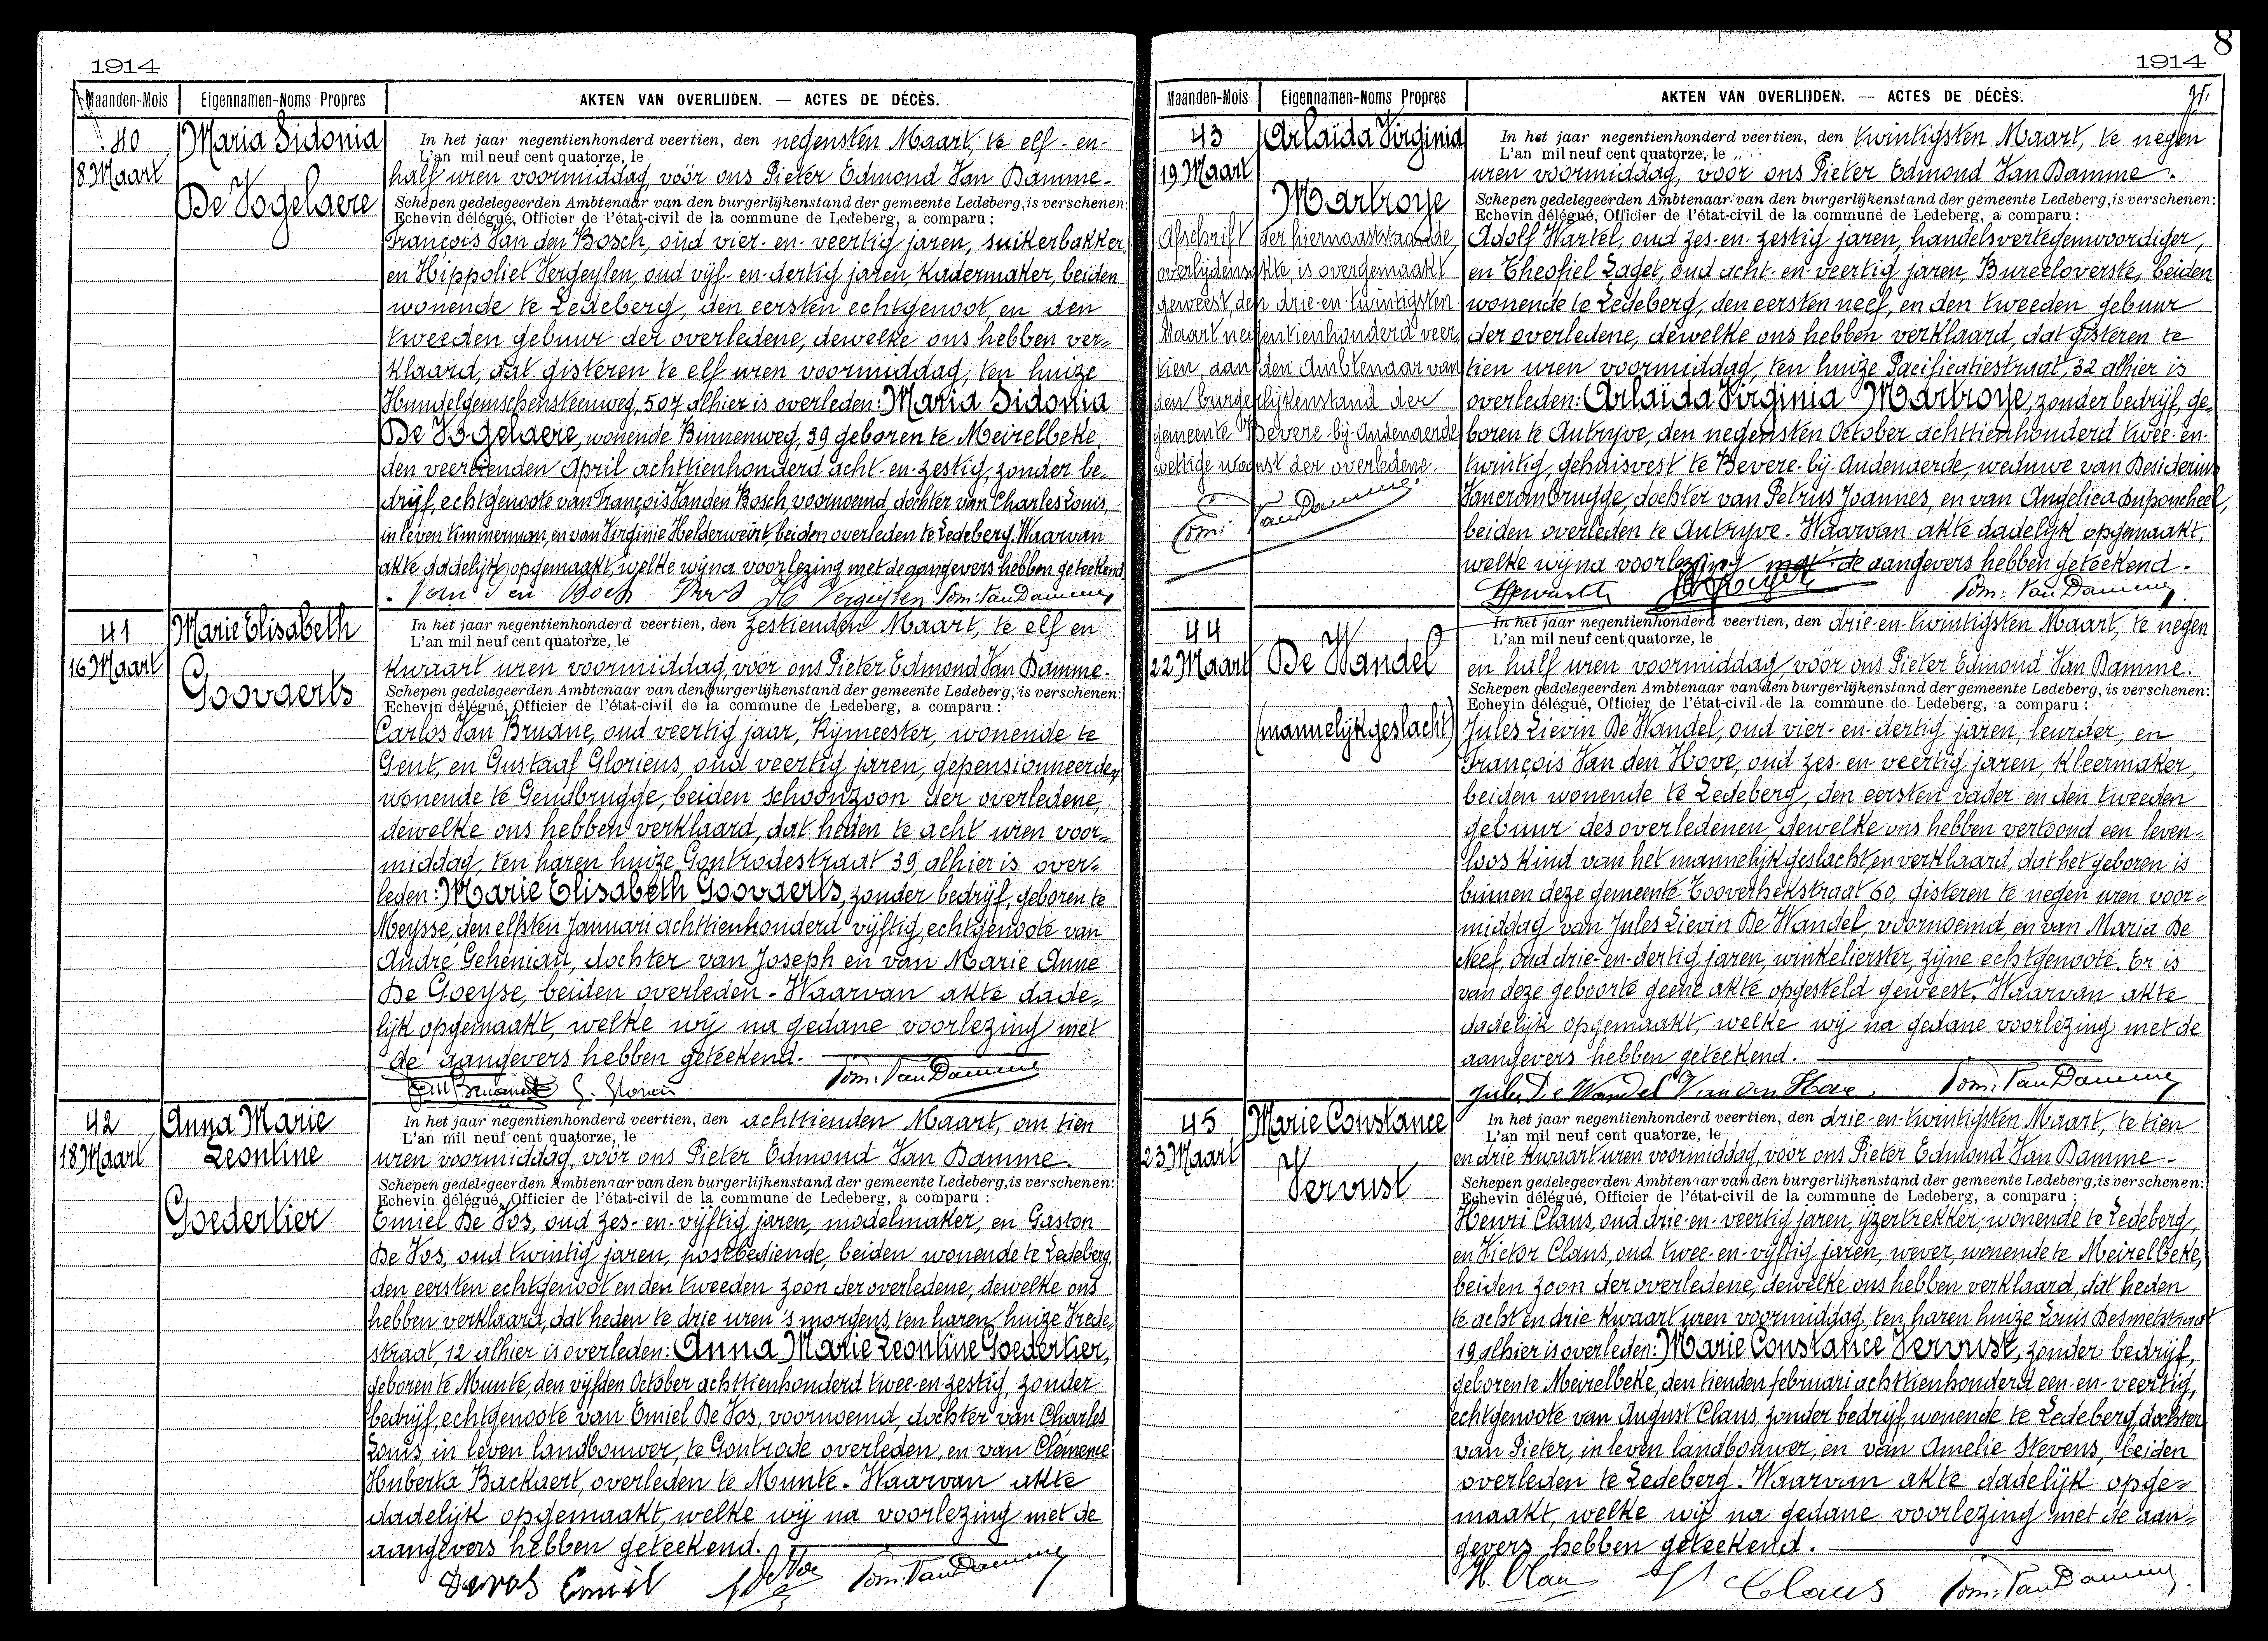 1914
Maanden-Mois Eigennamen-Noms Propres AKTEN VAN OVERLIJDEN. — ACTES DE DÉCÈS.
40
8 Maart
Maria Sidonia
De Vogelaere
In het jaar negentienhonderd veertien, den negensten Maart, te elf-en-
L'an mil neuf cent quatorze, le
half uren voormiddag, vóór ons Pieter Edmond Van Damme.
Schepen gedelegeerden Ambtenaar van den burgerlijkenstand der gemeente Ledeberg, is verschenen:
Echevin délégué, Officier de l'état-civil de la commune de Ledeberg, a comparu:
François Van den Bosch, oud vier-en-veertig jaren, suikerbakker,
en Hippoliet Vergeylen, oud vijf-en-dertig jaren, kadermaker, beiden
wonende te Ledeberg, den eersten echtgenoot, en den
tweeden gebuur der overledene, dewelke ons hebben ver-
klaard, dat gisteren te elf uren voormiddag, ten huize
507 alhier is overleden: Maria Sidonia
De Vogelaere, wonende Binnenweg, 39 geboren te Meirelbeke,
den veertienden April achttienhonderd acht-en-zestig, zonder be-
drijf, echtgenoote van François Van den Bosch, voornoemd, dochter van Charles Louis,
in leven timmerman, en van Virginie Helderweirt, beiden overleden te Ledeberg. Waarvan
akte dadelijk opgemaakt, welke wij na voorlezing met de aangevers hebben geteekend.
H. Vergeylen Pom. Van Damme
41
16 Maart
Marie Elisabeth
Goovaerts
In het jaar negentienhonderd veertien, den zestienden Maart, te elf en
L'an mil neuf cent quatorze, le
kwaart uren voormiddag, vóór ons Pieter Edmond Van Damme.
Schepen gedelegeerden Ambtenaar van den burgerlijkenstand der gemeente Ledeberg, is verschenen:
Echevin délégué, Officier de l'état-civil de la commune de Ledeberg, a comparu:
Carlos Van Bruane, oud veertig jaar, Rijmeester, wonende te
Gent, en Gustaaf Glorieus, oud veertig jaren, gepensionneerde,
wonende te Gendbrugge, beiden schoonzoon der overledene,
dewelke ons hebben verklaard, dat heden te acht uren voor-
middag, ten haren huize Gontrodestraat 39, alhier is over-
leden: Marie Elisabeth Goovaerts, zonder bedrijf, geboren te
Meysse, den elfsten Januari achttienhonderd vijftig, echtgenoote van
André Geheniau, dochter van Joseph en van Marie Anne
De Goeyse, beiden overleden. Waarvan akte dade-
lijk opgemaakt, welke wij na gedane voorlezing met
de aangevers hebben geteekend.
G. Glorieus Pom. Van Damme
42
18 Maart
Anna Marie
Leontine
Goedertier
In het jaar negentienhonderd veertien, den achttienden Maart, om tien
L'an mil neuf cent quatorze, le
uren voormiddag, vóór ons Pieter Edmond Van Damme.
Schepen gedelegeerden Ambtenaar van den burgerlijkenstand der gemeente Ledeberg, is verschenen:
Echevin délégué, Officier de l'état-civil de la commune de Ledeberg, a comparu:
Emiel De Vos, oud zes-en-vijftig jaren, modelmaker, en Gaston
De Vos, oud twintig jaren, postbediende, beiden wonende te Ledeberg,
den eersten echtgenoot en den tweeden zoon der overledene, dewelke ons
hebben verklaard, dat heden te drie uren 's morgens ten haren huize Vrede-
straat, 12 alhier is overleden: Anna Marie Leontine Goedertier,
geboren te Munte, den vijfden October achttienhonderd twee-en-zestig, zonder
bedrijf, echtgenoote van Emiel De Vos, voornoemd, dochter van Charles
Louis, in leven landbouwer, te Gontrode overleden, en van Clemence
Huberta Backaert, overleden te Munte. Waarvan akte
dadelijk opgemaakt, welke wij na voorlezing met de
aangevers hebben geteekend.
Devos Emiel G De Vos Pom. Van Damme
8
1914
Maanden-Mois Eigennamen-Noms Propres AKTEN VAN OVERLIJDEN. — ACTES DE DÉCÈS.
43
19 Maart
Arlaïda Virginia
Martroye
Afschrift der hiernaaststaande
overlijdensakte, is overgemaakt
geweest, den drie-en-twintigsten
Maart negentienhonderd veer-
tien, aan den Ambtenaar van
den burgerlijkenstand der
gemeente Bevere-bij-Audenaerde
wettige woonst der overledene.
Pom. Van Damme.
In het jaar negentienhonderd veertien, den twintigsten Maart, te negen
L'an mil neuf cent quatorze, le
uren voormiddag, vóór ons Pieter Edmond Van Damme.
Schepen gedelegeerden Ambtenaar van den burgerlijkenstand der gemeente Ledeberg, is verschenen:
Echevin délégué, Officier de l'état-civil de la commune de Ledeberg, a comparu:
Adolf Wartel, oud zes-en-zestig jaren, handelsvertegenwoordiger,
en Theofiel Laget, oud acht-en-veertig jaren, Bureeloverste, beiden
wonende te Ledeberg, den eersten neef, en den tweeden gebuur
der overledene, dewelke ons hebben verklaard, dat gisteren te
tien uren voormiddag, ten huize Pacificatiestraat, 32 alhier is
overleden: Arlaïda Virginia Martroye, zonder bedrijf, ge-
boren te Autryve, den negensten October achttienhonderd twee-en-
twintig, gehuisvest te Bevere-bij-Audenaerde, weduwe van Desiderius
Vancranbrugge, dochter van Petrus Joannes, en van Angelica Duponcheel,
beiden overleden te Autryve. Waarvan akte dadelijk opgemaakt,
welke wij na voorlezing met de aangevers hebben geteekend.
Pom. Van Damme
44
22 Maart
De Wandel
(mannelijk geslacht)
In het jaar negentienhonderd veertien, den drie-en-twintigsten Maart, te negen
L'an mil neuf cent quatorze, le
en half uren voormiddag, vóór ons Pieter Edmond Van Damme.
Schepen gedelegeerden Ambtenaar van den burgerlijkenstand der gemeente Ledeberg, is verschenen:
Echevin délégué, Officier de l'état-civil de la commune de Ledeberg, a comparu:
Jules Lievin De Wandel, oud vier-en-dertig jaren, leurder, en
François Van den Hove, oud zes-en veertig jaren, kleermaker,
beiden wonende te Ledeberg, den eersten vader en den tweeden
gebuur des overledenen, dewelke ons hebben vertoond een leven-
loos kind van het mannelijk geslacht, en verklaard, dat het geboren is
binnen deze gemeente Tooverhekstraat 60, gisteren te negen uren voor-
middag van Jules Lievin De Wandel, voornoemd, en van Maria De
Neef, oud drie-en-dertig jaren, winkelierster, zijne echtgenoote. Er is
van deze geboorte geene akte opgesteld geweest. Waarvan akte
dadelijk opgemaakt, welke wij na gedane voorlezing met de
aangevers hebben geteekend.
Jules De Wandel Van den Hove Pom. Van Damme
45
23 Maart
Marie Constance
Vervust
In het jaar negentienhonderd veertien, den drie-en-twintigsten Maart, te tien
L'an mil neuf cent quatorze, le
en drie kwaart uren voormiddag, vóór ons Pieter Edmond Van Damme.
Schepen gedelegeerden Ambtenaar van den burgerlijkenstand der gemeente Ledeberg, is verschenen:
Echevin délégué, Officier de l'état-civil de la commune de Ledeberg, a comparu:
Henri Claus, oud drie-en-veertig jaren, ijzertrekker, wonende te Ledeberg,
en Victor Claus, oud twee-en-vijftig jaren, wever, wonende te Meirelbeke,
beiden zoon der overledene, dewelke ons hebben verklaard, dat heden
te acht en drie kwaart uren voormiddag, ten haren huize Louis Desmetstraat
19 alhier is overleden: Marie Constance Vervust, zonder bedrijf,
geboren te Meirelbeke, den tienden februari achttienhonderd een-en-veertig,
echtgenoote van August Claus, zonder bedrijf, wonende te Ledeberg, dochter
van Pieter, in leven landbouwer, en van Amelie Stevens, beiden
overleden te Ledeberg. Waarvan akte dadelijk opge-
maakt, welke wij na gedane voorlezing met de aan-
gevers hebben geteekend.
H. Claus V Claus Pom. Van Damme